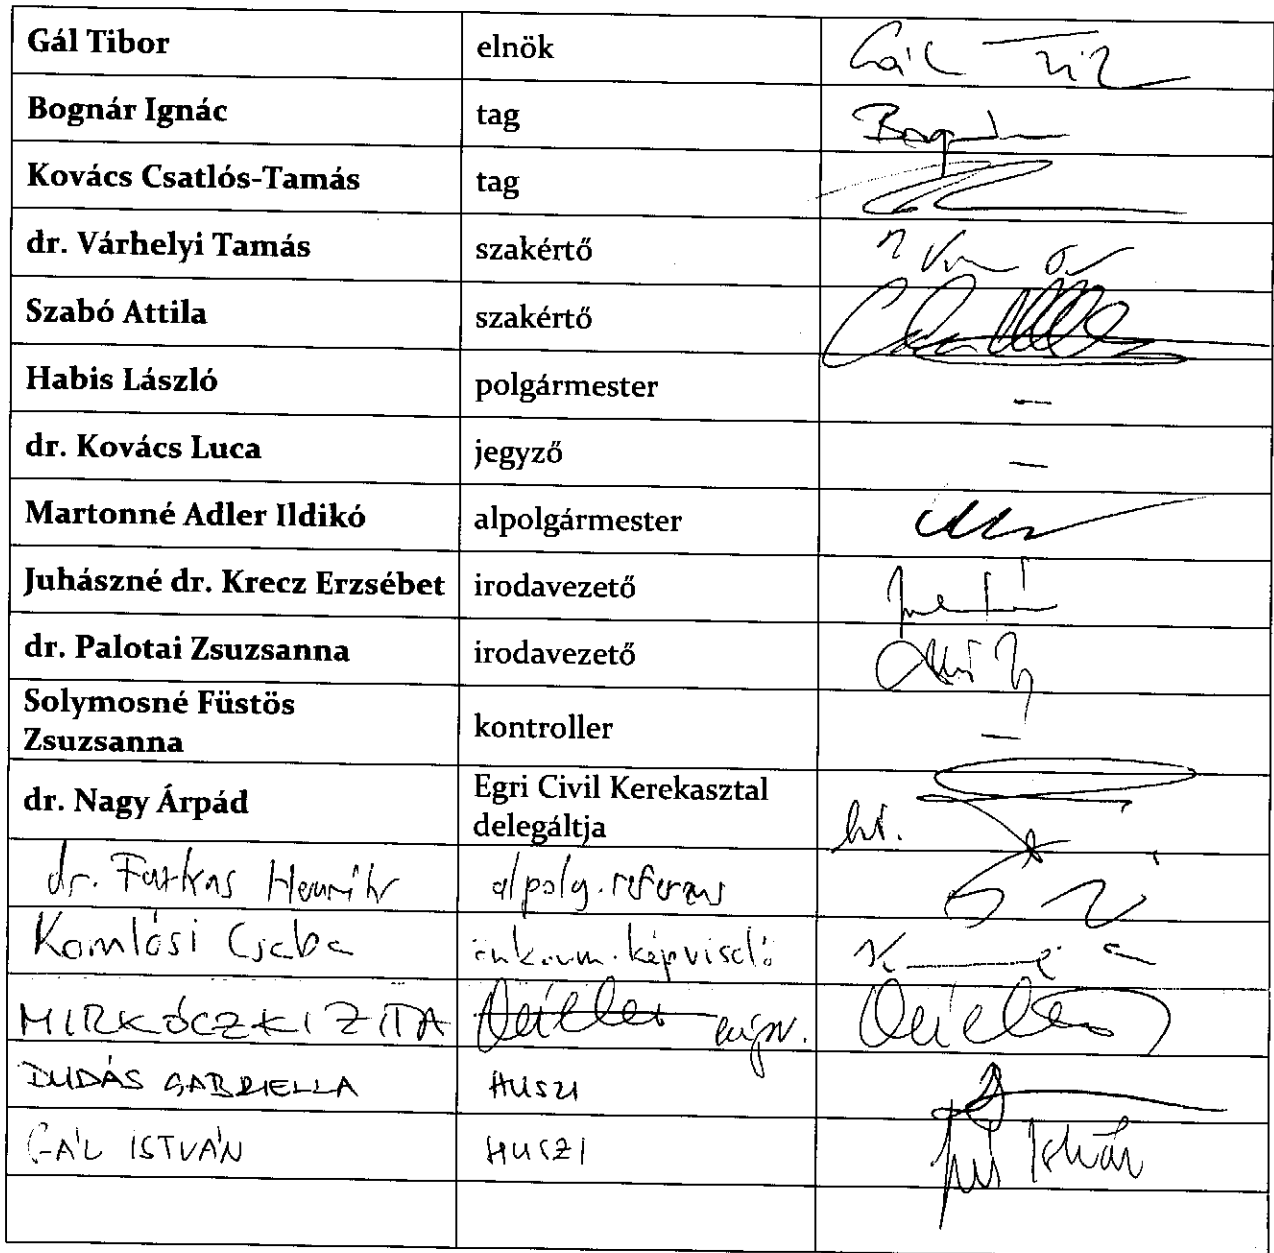 Gál Tibor elnök Gál Tib
Bognár Ignác tag Bognár
Kovács Csatlós-Tamás tag
dr. Várhelyi Tamás szakértő
Szabó Attila szakértő
Habis László polgármester –
dr. Kovács Luca jegyző –
Martonné Adler Ildikó alpolgármester
Juhászné dr. Krecz Erzsébet irodavezető
dr. Palotai Zsuzsanna irodavezető
Solymosné Füstös
Zsuzsanna kontroller –
dr. Nagy Árpád Egri Civil Kerekasztal
delegáltja
dr. Farkas Henrik alpolg. referens
Komlósi Csaba önkorm. képviselő
MIRKÓCZKI ZITA képv.
DUDÁS GABRIELLA HUSZI
GÁL ISTVÁN HUSZI Gál István